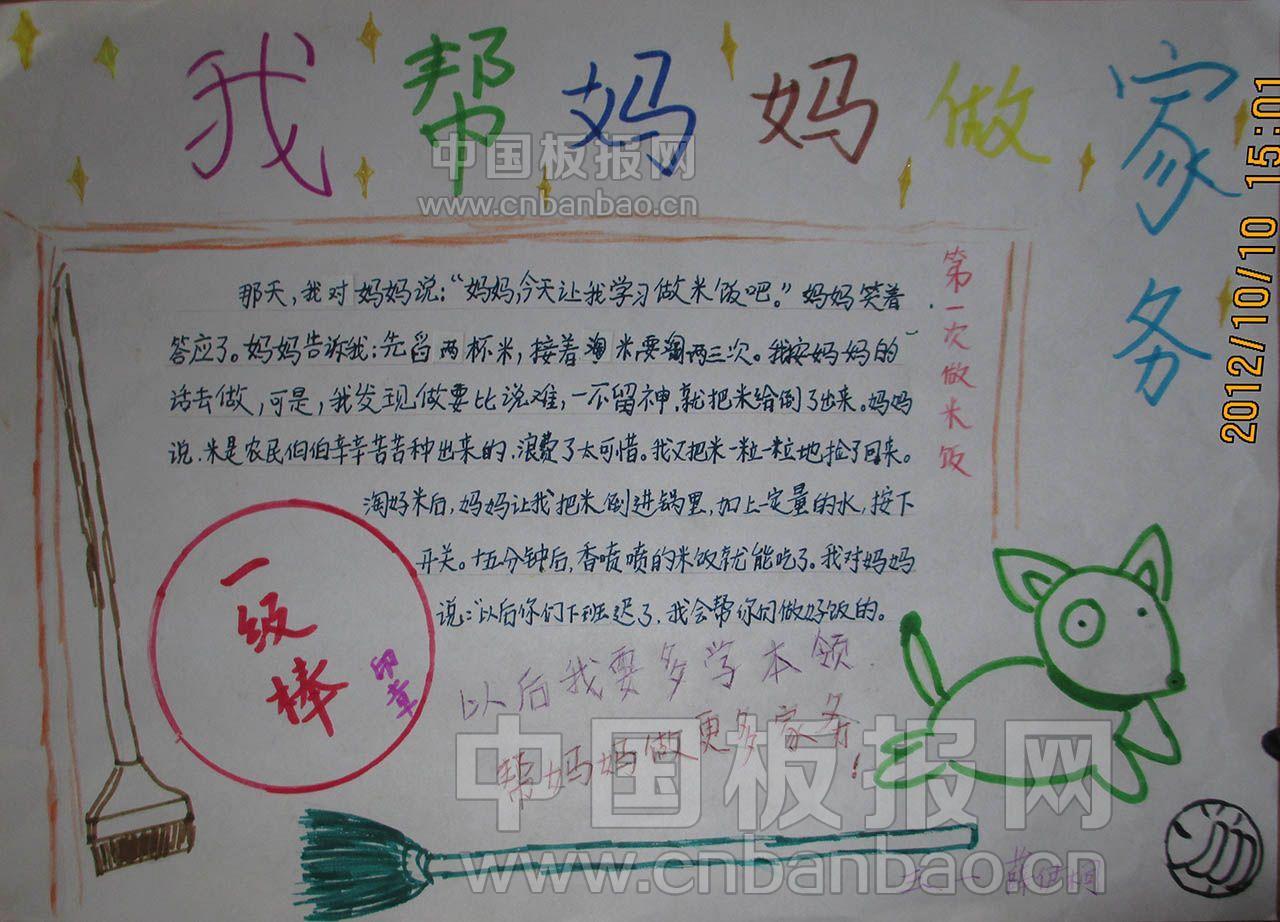 我帮妈妈做家务
中国板报网
www.cnbanbao.cn
2012/10/10 15:01
第一次做米饭
那天，我对妈妈说：“妈妈，今天让我学习做米饭吧。”妈妈笑着
答应了。妈妈告诉我：先舀两杯米，接着淘米要淘两三次。我按妈妈的
话去做，可是，我发现做要比说难，一不留神，就把米给倒了出来。妈妈
说，米是农民伯伯辛辛苦苦种出来的，浪费了太可惜。我又把米一粒一粒地捡了回来。
淘好米后，妈妈让我把米倒进锅里，加上一定量的水，按下
开关。十五分钟后，香喷喷的米饭就能吃了。我对妈妈
说：“以后你们下班迟了，我会帮你们做好饭的。
一级棒
印章
以后我要多学本领，
帮妈妈做更多家务！
中国板报网
www.cnbanbao.cn